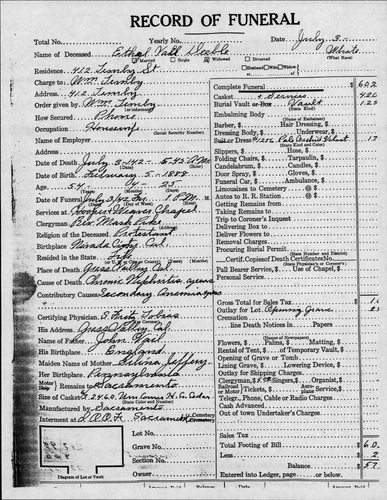 RECORD OF FUNERAL
Total No. Yearly No. Date July 3-
Name of Deceased Ethel Vail Deeble White
Married Single Widowed Divorced Husband Wife Widow (What Race)
Residence 412 Timby St
Charge to Wm. Timby
Address 412 Timby
Order given by Wm. Timby
How Secured Phone
Occupation Housewife
(Social Security Number)
Name of Employer
Address
Date of Death July 3-142- 5:42 AM
Date of Birth February 5-1888
Age 54- 4- 25
Date of Funeral July 3/42 1 P.M.
Services at Hooper Weaver Chapel
Clergyman Rev. Mark
Religion of the Deceased Protestant
Birthplace Nevada City, Cal.
Resided in the State Life
Place of Death Grass Valley Cal.
Cause of Death Chronic Nephritis, years
Contributory Causes Secondary Anemia years
Certifying Physician
His Address Grass Valley, Cal.
Name of Father John Vail
His Birthplace England
Maiden Name of Mother Selina Jeffery
Her Birthplace Pennsylvania
Motor Ship Remains to Sacramento
Size of Casket
Manufactured by Sacramento
Interment at I.O.O.F. Sacramento Cemetery
Lot No.
Grave No.
Block No.
Section No.
Owner
Diagram of Lot or Vault
Complete Funeral $ 602
Casket + Services 426
Burial Vault or Box Vault 125
(State Kind)
Embalming Body
Barber, Hair Dressing, $
Dressing Body, $ Underwear, $
Suit or Dress
(State Kind and Color)
Slippers, $ Hose, $
Folding Chairs, $ Tarpaulin, $
Candelabrum, $ Candles, $
Door Spray, $ Gloves, $
Funeral Car, $ Ambulance, $
Limousines to Cemetery @ $
Autos to R. R. Station @ $
Getting Remains from
Taking Remains to
Trip to Coroner's Inquest
Delivering Box to
Deliver Flowers to
Removal Charges
Procuring Burial Permit
(State Number and District)
Certif. Copies of Death Certificates No.
(State Physician's or Coroner's)
Pall Bearer Service, $ Use of Chapel, $
Personal Service
Gross Total for Sales Tax $
Outlay for Lot Opening Grave
Cremation
line Death Notices in Papers
(Name Newspapers)
Flowers, $ Palms, $ Matting, $
Rental of Tent, $ of Temporary Vault, $
Opening of Grave or Tomb
Lining Grave, $ Lowering Device, $
Outlay for Shipping Charges
Clergyman, $ Singers, $ Organist, $
Railroad Tickets, $
Telegr., Phone, Cable or Radio Charges
Cash Advanced
Out of town Undertaker's Charges
Sales Tax
Total Footing of Bill $ 60
Less 2
Balance $ 57
Entered into Ledger, page or below.